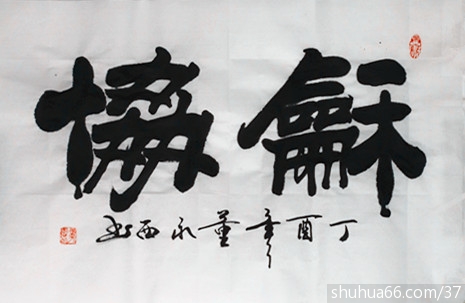 龢協
丁酉年董永西书
shuhua66.com/37